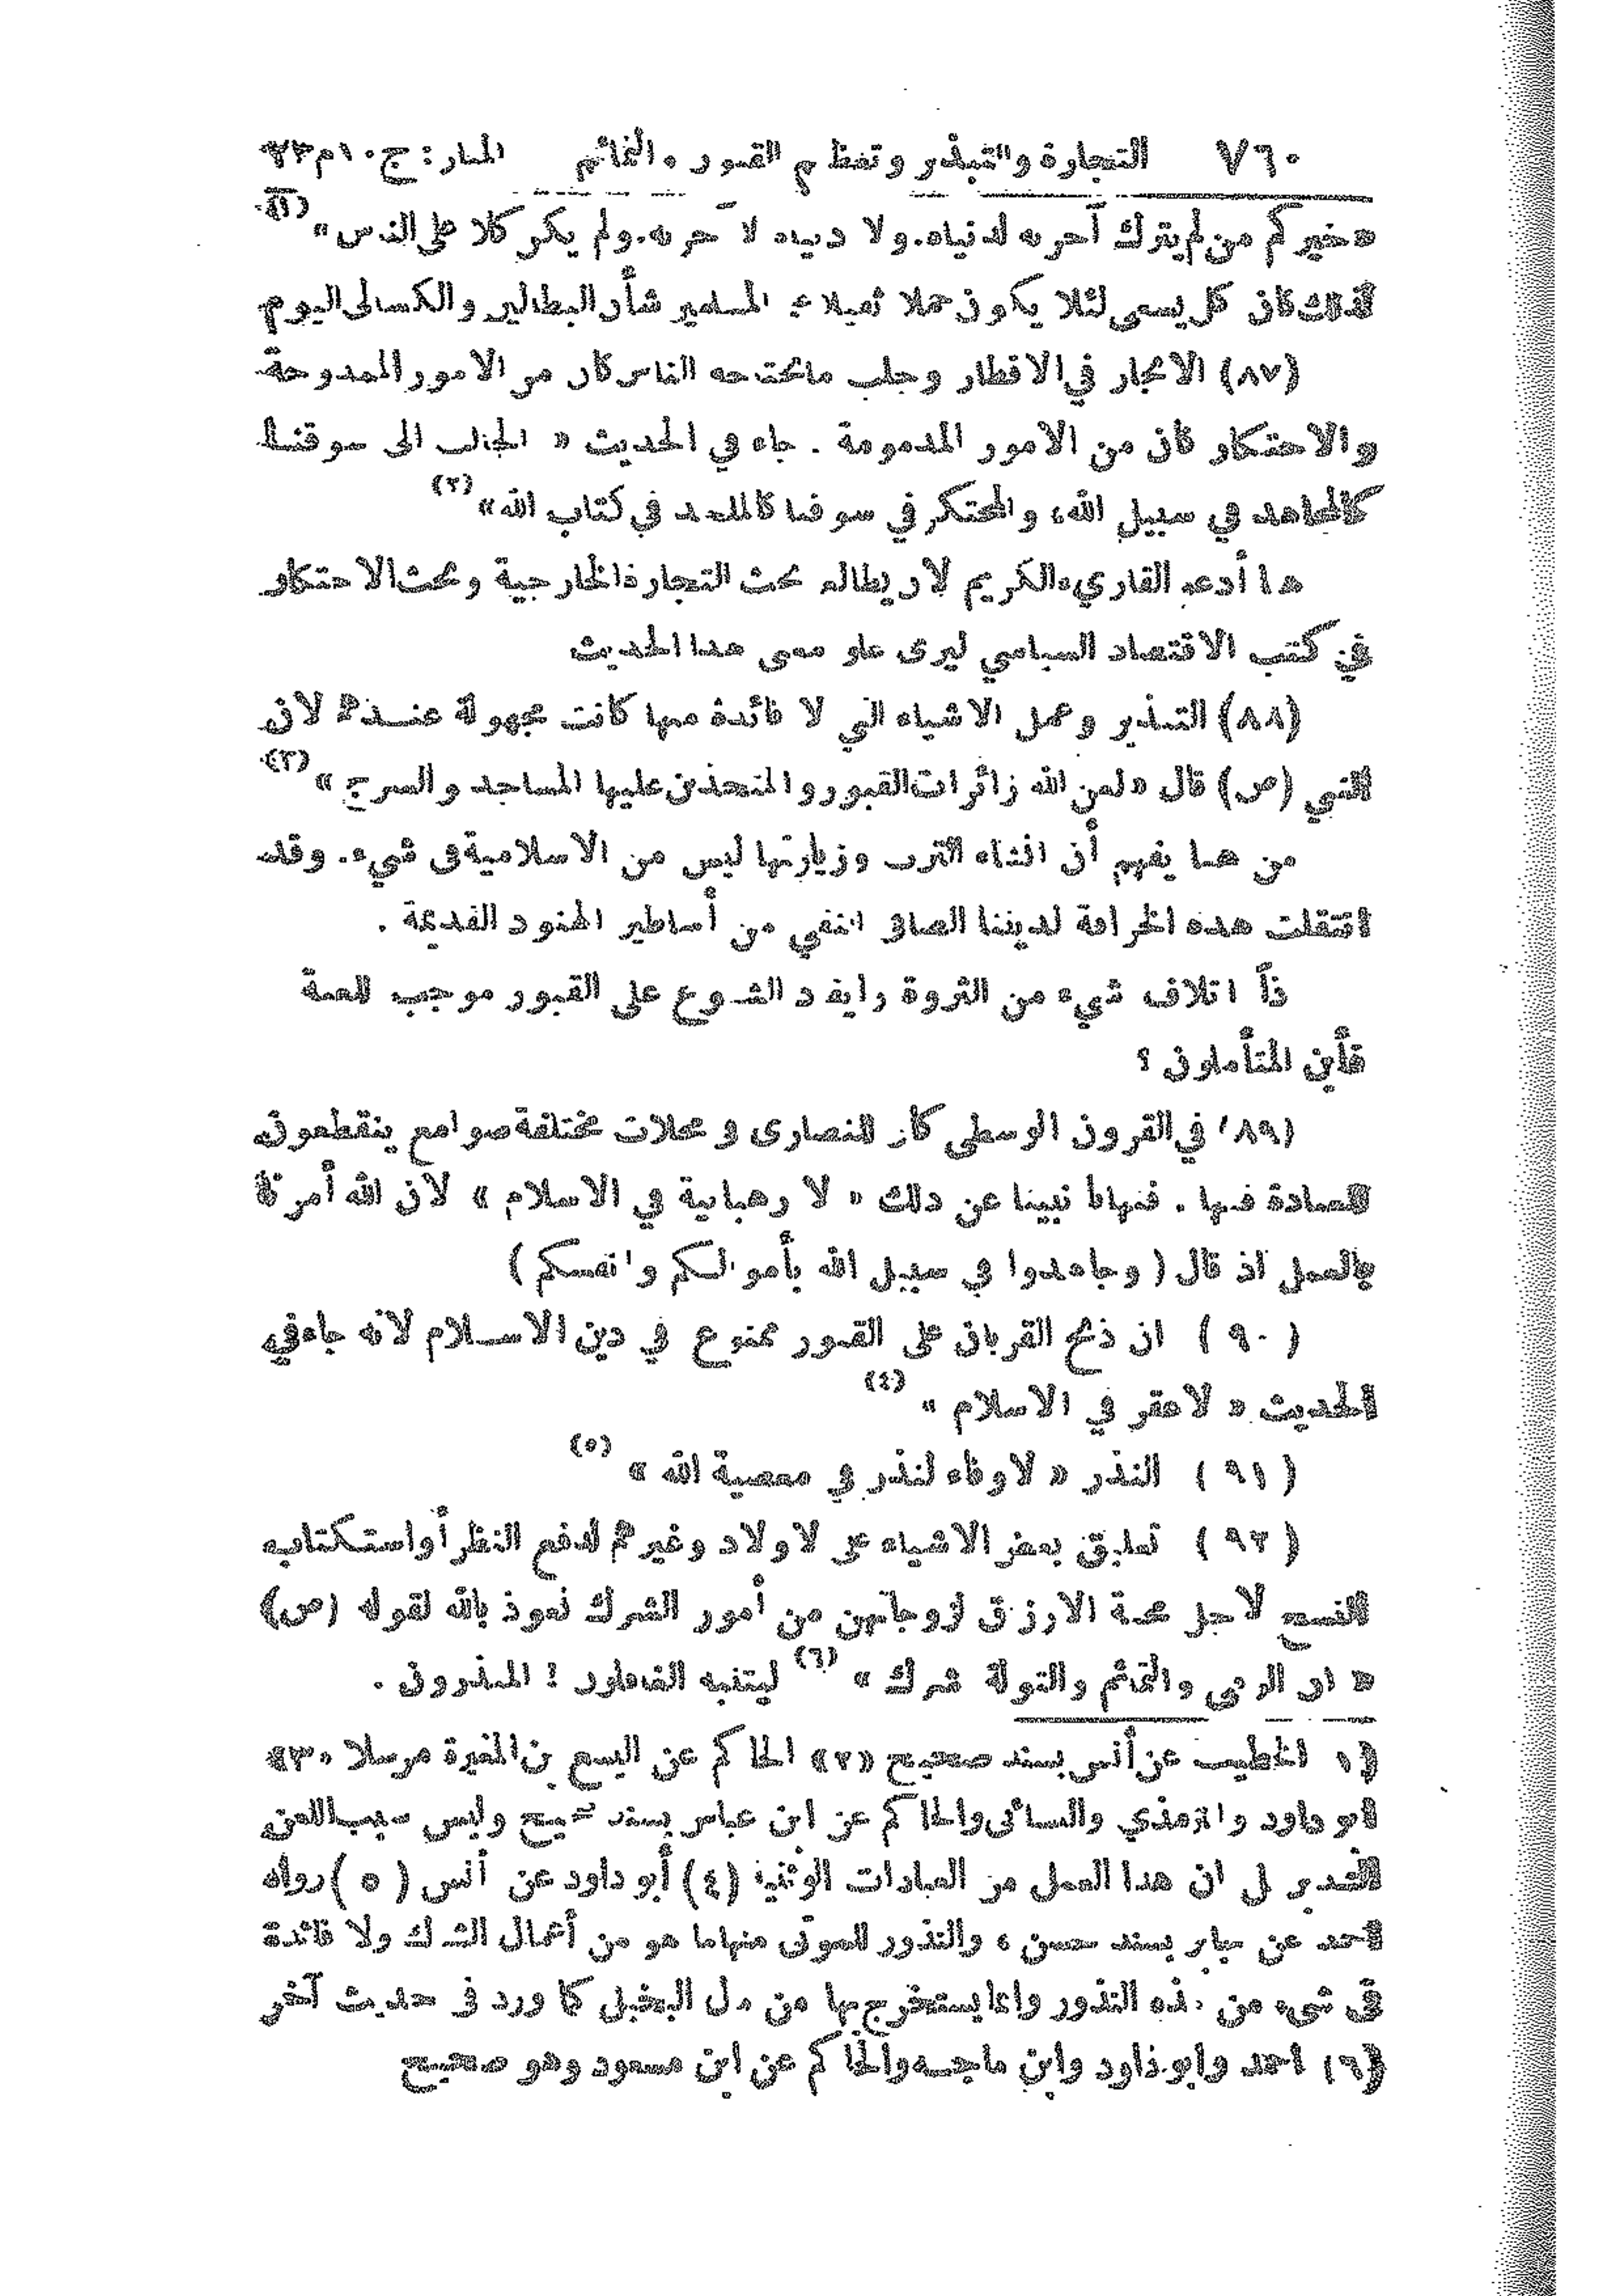 ٧٦٠ التجارة والتبذير وتعظيم القبور والتمائم المنار: ج ١٠ م ٢٣
«خيركم من لم يترك آخرته لدنياه. ولا دنياه لآخرته. ولم يكن كلا على الناس» (١)
لذلك كان كل يسعى لئلا يكون حملا ثقيلا المسلمين شأن البطالين والكسالى اليوم
(٨٧) الاتجار في الاقطار وجلب ما يحتاجه الناس كان من الامور الممدوحة
والاحتكار كان من الامور المذمومة . جاء في الحديث « الجالب الى سوقنا
كالمجاهد في سبيل الله، والمحتكر في سوقنا كالملحد في كتاب الله» (٢)
هنا أدعو القاريء الكريم لان يطالع بحث التجارة الخارجية وبحث الاحتكار
في كتب الاقتصاد السياسي ليرى علو معنى هذا الحديث
(٨٨) التبذير وعمل الاشياء التي لا فائدة منها كانت مجهولة عندهم لان
النبي (ص) قال «لعن الله زائرات القبور والمتخذين عليها المساجد والسرج» (٣)
من هنا يفهم أن انشاء الترب وزيارتها ليس من الاسلامية في شيء. وقد
انتقلت هذه الخرافة لديننا الصافي النقي من أساطير الهنود القديمة .
فاذاً اتلاف شيء من الثروة وايقاد الشموع على القبور موجب للعنة
فأين المتأملون ؟
(٨٩) في القرون الوسطى كان للنصارى في محلات مختلفة صوامع ينقطعون
للعبادة فيها . فنهانا نبينا عن ذلك « لا رهبانية في الاسلام » لان الله أمرنا
بالعمل اذ قال ( وجاهدوا في سبيل الله بأموالكم وانفسكم )
( ٩٠ ) ان ذبح القربان على القبور ممنوع في دين الاسلام لانه جاء في
الحديث « لا عقر في الاسلام » (٤)
( ٩١ ) النذر « لا وفاء لنذر في معصية الله » (٥)
( ٩٢ ) تعليق بعض الاشياء على الاولاد وغيرهم لدفع النظر أو استكتاب
النسخ لاجل محبة الازواج لزوجاتهن من أمور الشرك نعوذ بالله لقوله (ص)
« ان الرقى والتمائم والتولة شرك » (٦) ليتنبه الغافلون ! المبذرون .
(١) الخطيب عن أنس بسند صحيح «٢» الحاكم عن اليسع بن المغيرة مرسلا «٣»
ابو داود والترمذي والنسائي والحاكم عن ابن عباس بسند صحيح وليس سبب اللعن
التبذير بل ان هذا العمل من العبادات الوثنية (٤) أبو داود عن أنس ( ٥ ) رواه
احمد عن جابر بسند حسن ، والنذور للموتى منهاما هو من أعمال الشرك ولا فائدة
في شيء من هذه النذور وانما يستخرج بها من مال البخيل كما ورد في حديث آخر
(٦) احمد وابو داود وابن ماجه والحاكم عن ابن مسعود وهو صحيح